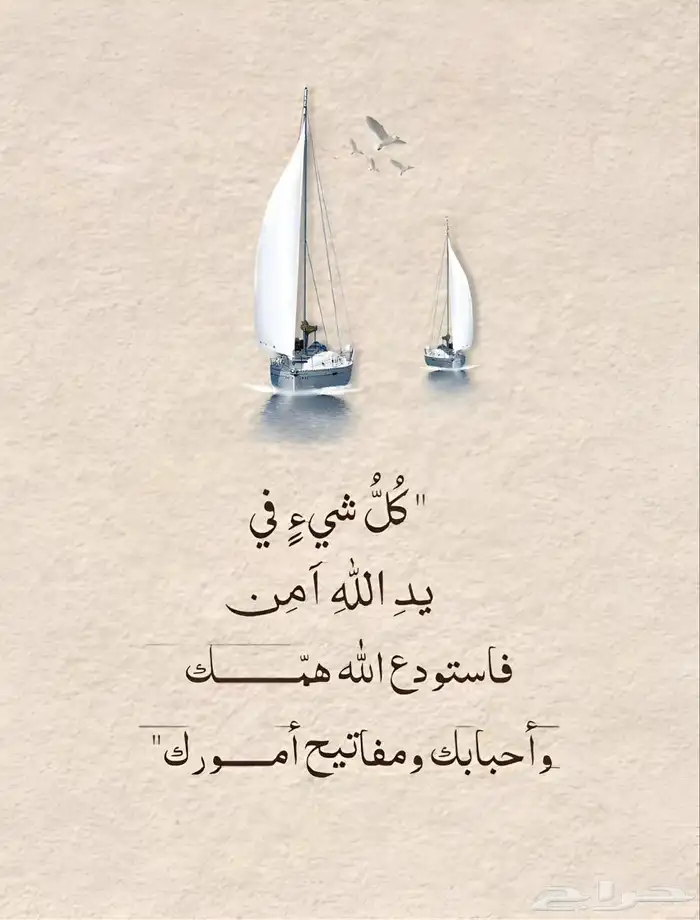 "كُلُّ شيءٍ في
يدِ اللهِ آمِن
فاستودع الله همّـــــك
وأحبابك ومفاتيح أمـــورك"
حراج